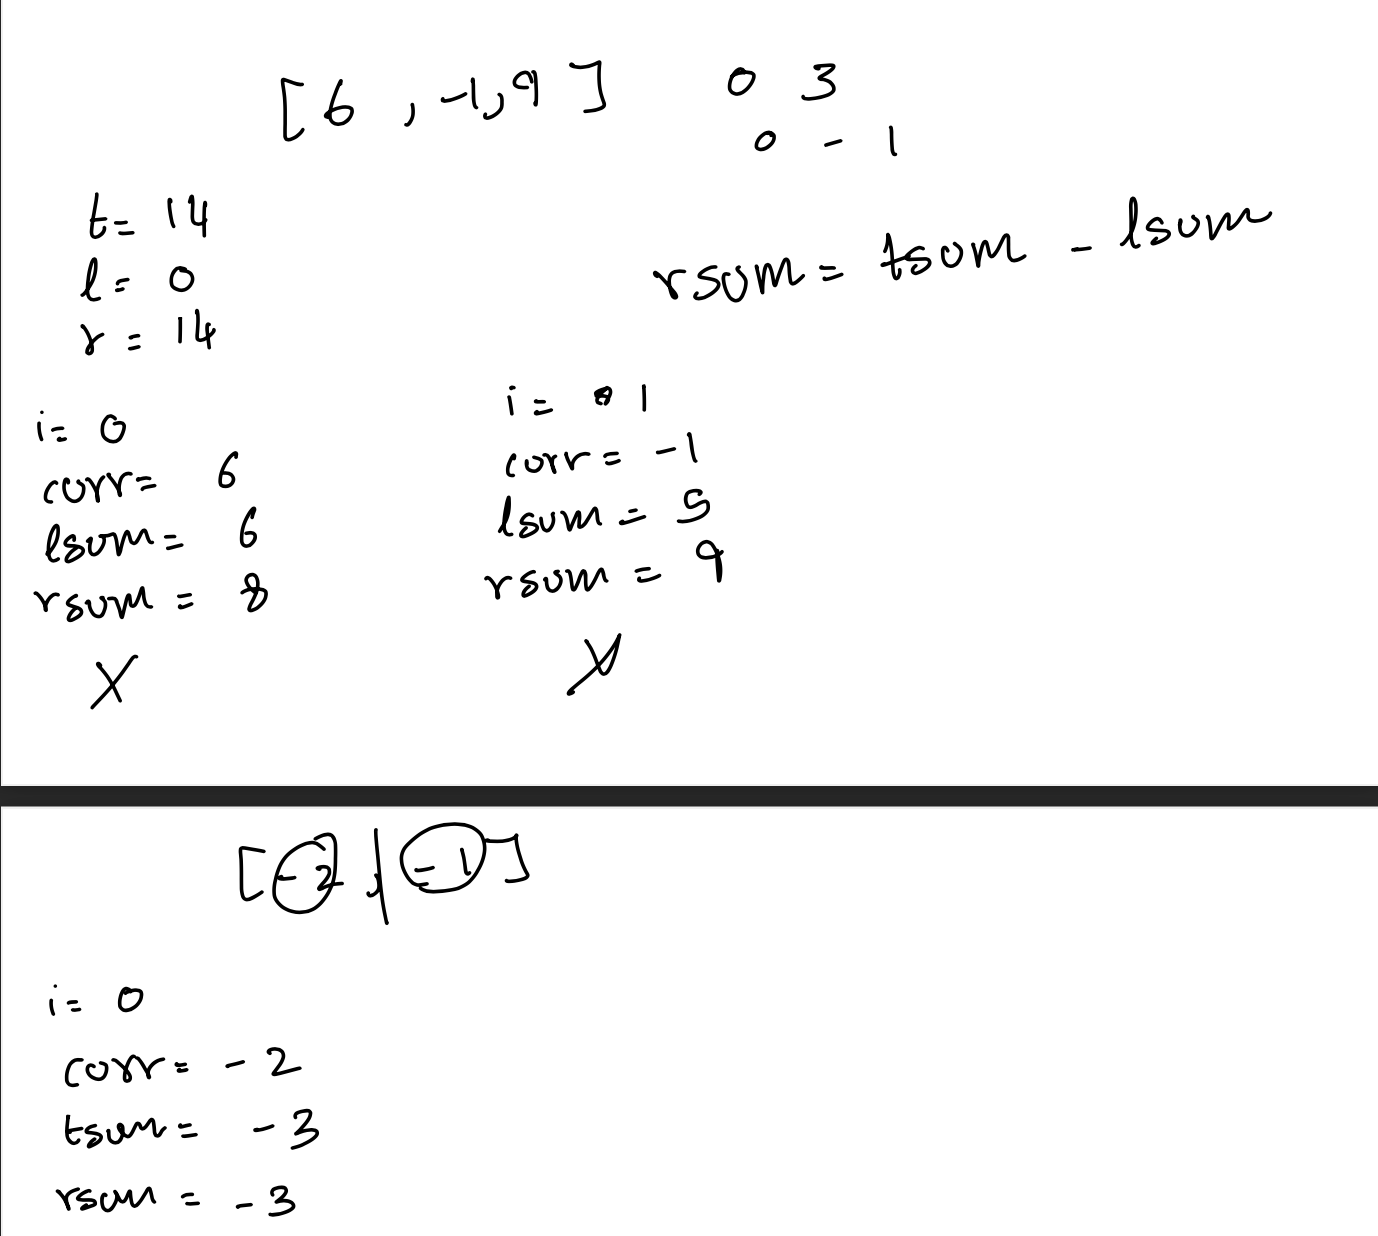 [6 , -1, 9] 0 3
0 - 1
t= 14
l= 0
r= 14
rsum = tsum - lsum
i= 0
curr= 6
lsum= 6
rsum = 8
X
i= 1
curr= -1
lsum = 5
rsum = 9
X
[-2, -1]
i= 0
curr= -2
tsum= -3
rsum = -3